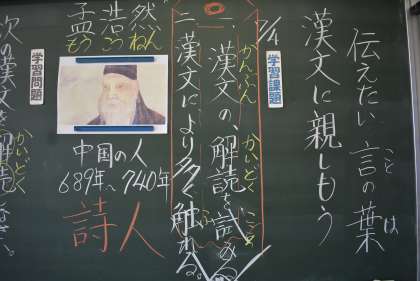 伝えたい 言の葉
こと は
漢文に親しもう
7/4
学習課題
一 漢文の、解読を試みる。
かんぶん かいどく こころ
二 漢文により多く触れる。
ふ
孟浩然
もうこうねん
中国の人
689年~740年
詩人
学習問題
次の漢文を解読しなさい。
かいどく